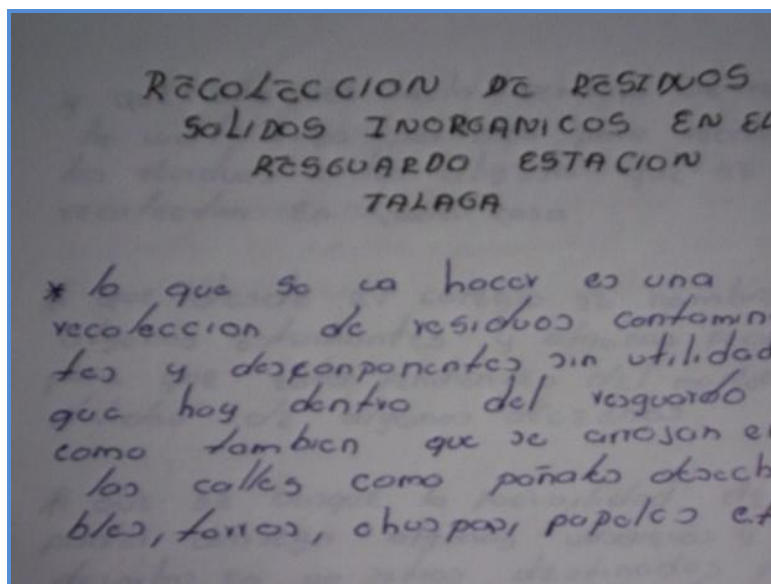 RECOLECCION DE RESIDUOS
SOLIDOS INORGANICOS EN EL
RESGUARDO ESTACION
TALAGA
* lo que se va hacer es una
recoleccion de residuos contamin
tes y desconponentes sin utilidad
que hay dentro del resguardo
como tambien que se arrojan e
los calles como pañales desech
bles, tarros, chuspas, papeles et